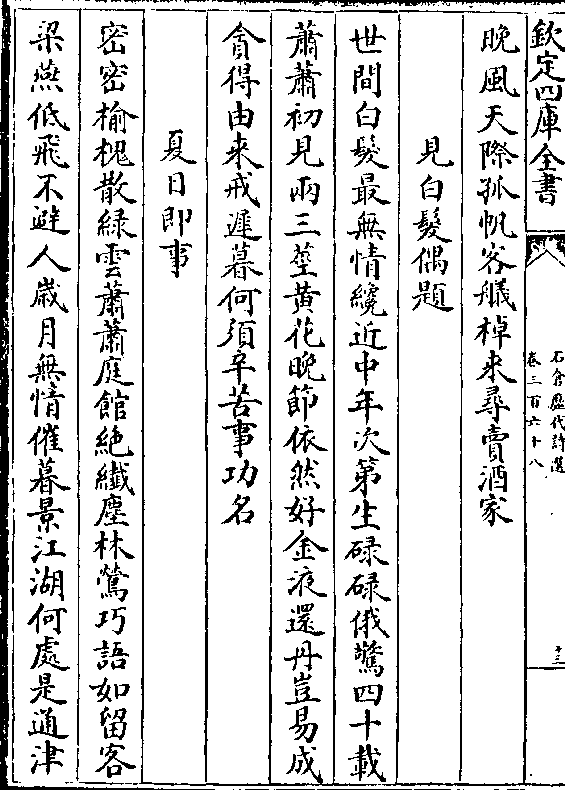 欽定四庫全書
石倉歷代詩選
卷三百六十八
十三
晚風天際孤帆客艤棹来尋賣酒家
見白髮偶題
世間白髮最無情纔近中年次第生碌碌俄驚四十載
蕭蕭初見兩三莖黄花晚節依然好金液還丹豈易成
貪得由來戒遲暮何須辛苦事功名
夏日即事
密密榆槐散緑雲蕭蕭庭館絶纎塵林鶯巧語如留客
梁燕低飛不避人嵗月無情催暮景江湖何處是通津